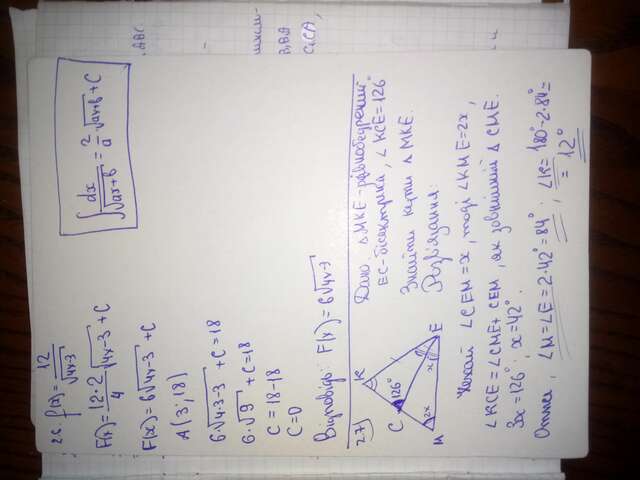 2.6. f(x) = 12/√(4x-3)
F(x) = (12·2)/4 √(4x-3) + C
∫ dx/√(ax+b) = 2/a √(ax+b) + C
F(x) = 6√(4x-3) + C
A(3; 18)
6·√(4·3-3) + C = 18
6·√9 + C = 18
C = 18-18
C = 0
Відповідь: F(x) = 6√(4x-3)
2.7)
K
C
126°
M
2x
x
E
Дано: ΔMKE - рівнобедрений
EC-бісектриса, ∠KCE = 126°
Знайти кути ΔMKE.
Розв'язання:
Нехай ∠CEM = x, тоді ∠KME = 2x,
∠KCE = ∠CME + CEM, як зовнішній Δ CME.
3x = 126°; x = 42°.
Отже, ∠M = ∠E = 2·42° = 84°; ∠K = 180° - 2·84° =
= 12°
ABC